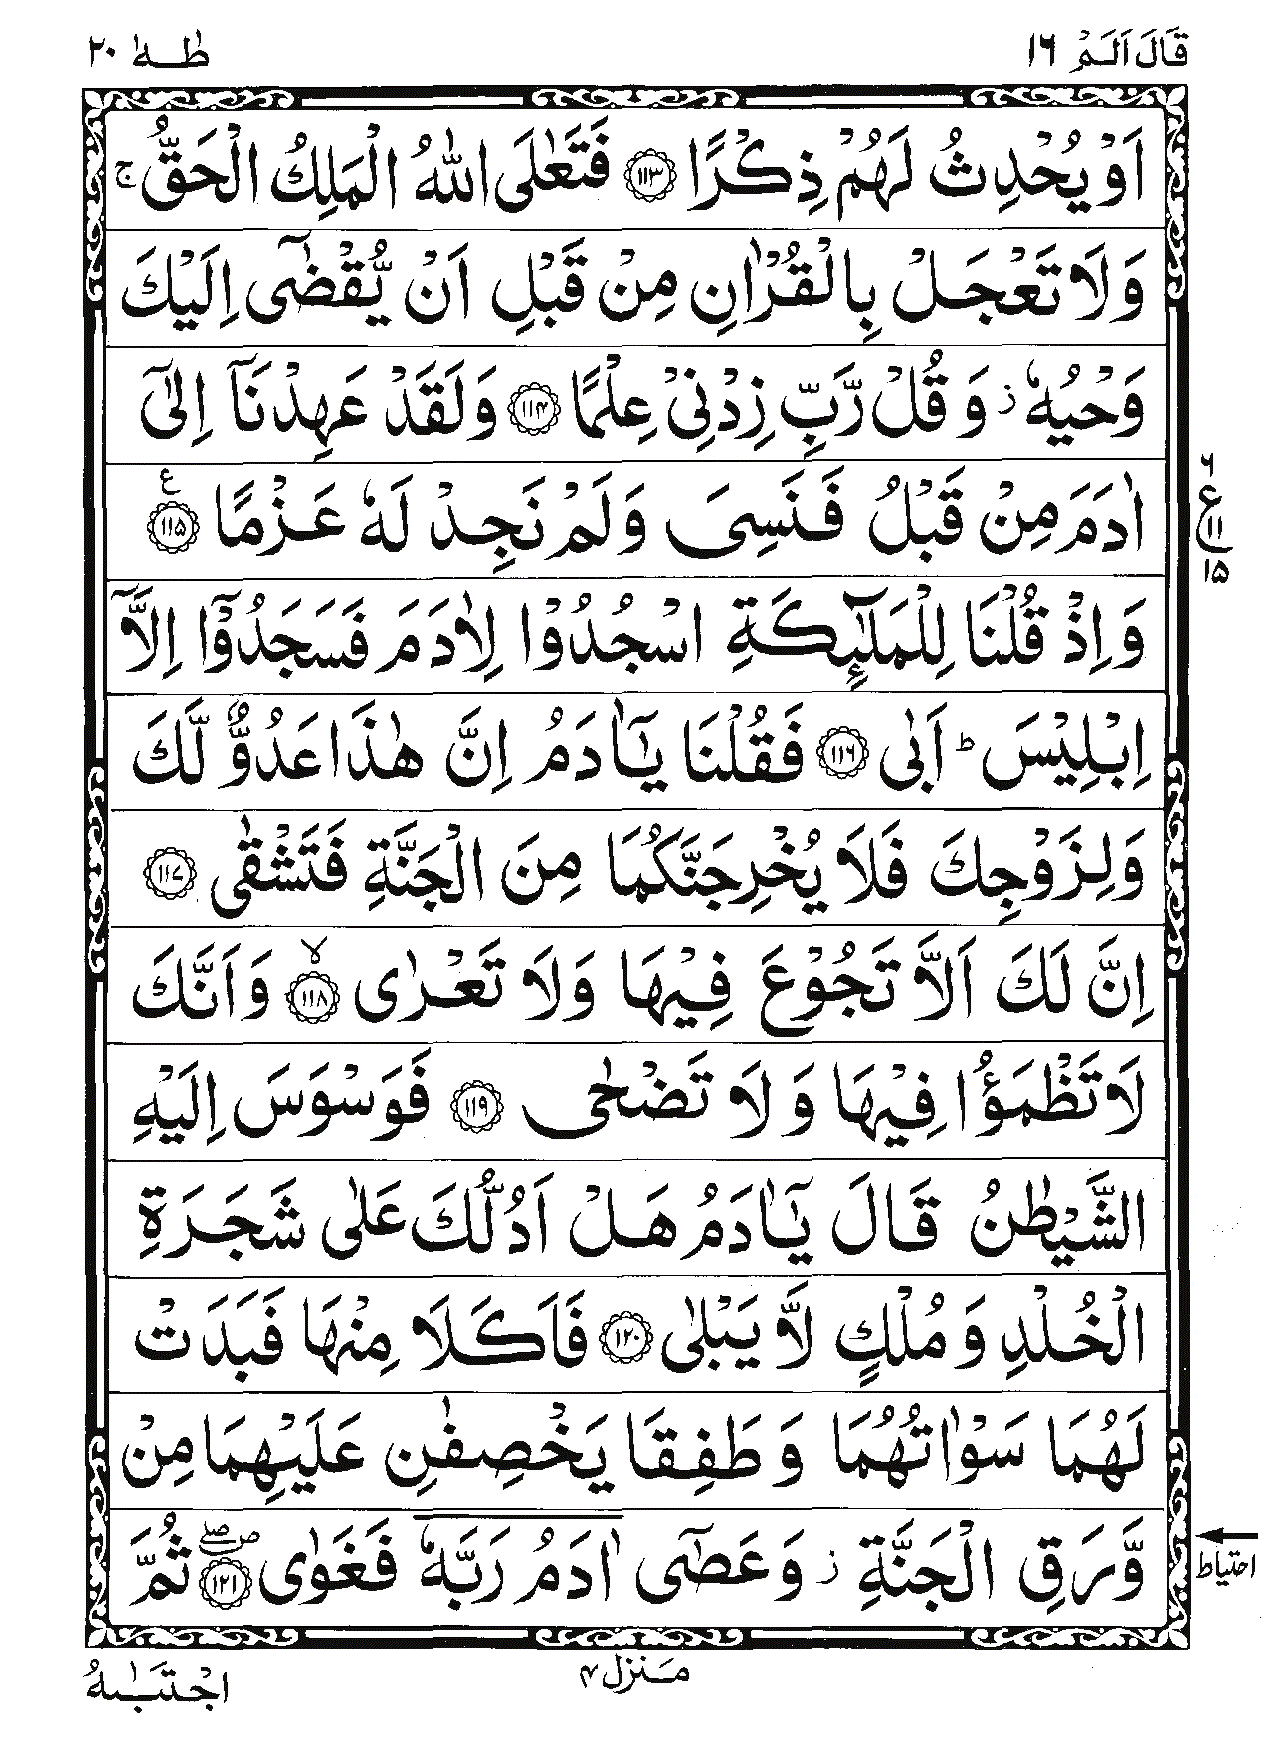 قَالَ اَلَمْ ١٦
طٰهٰ ٢٠
اَوْ يُحْدِثُ لَهُمْ ذِكْرًا ﴿١١٣﴾ فَتَعٰلَى اللّٰهُ الْمَلِكُ الْحَقُّ ۚ
وَلَا تَعْجَلْ بِالْقُرْاٰنِ مِنْ قَبْلِ اَنْ يُّقْضٰٓى اِلَيْكَ
وَحْيُهٗ ز وَ قُلْ رَّبِّ زِدْنِيْ عِلْمًا ﴿١١۴﴾ وَلَقَدْ عَهِدْنَآ اِلٰٓى
اٰدَمَ مِنْ قَبْلُ فَنَسِيَ وَلَمْ نَجِدْ لَهٗ عَزْمًا ﴿١١۵﴾ ع
٦
ع
١١
١۵
وَاِذْ قُلْنَا لِلْمَلٰٓئِكَةِ اسْجُدُوْا لِاٰدَمَ فَسَجَدُوْٓا اِلَّآ
اِبْلِيْسَ ط اَبٰى ﴿١١٦﴾ فَقُلْنَا يٰٓاٰدَمُ اِنَّ هٰذَا عَدُوٌّ لَّكَ
وَلِزَوْجِكَ فَلَا يُخْرِجَنَّكُمَا مِنَ الْجَنَّةِ فَتَشْقٰى ﴿١١٧﴾
اِنَّ لَكَ اَلَّا تَجُوْعَ فِيْهَا وَلَا تَعْرٰى ﴿١١٨﴾ لا وَاَنَّكَ
لَا تَظْمَؤُا فِيْهَا وَلَا تَضْحٰى ﴿١١٩﴾ فَوَسْوَسَ اِلَيْهِ
الشَّيْطٰنُ قَالَ يٰٓاٰدَمُ هَلْ اَدُلُّكَ عَلٰى شَجَرَةِ
الْخُلْدِ وَ مُلْكٍ لَّا يَبْلٰى ﴿١٢٠﴾ فَاَكَلَا مِنْهَا فَبَدَتْ
لَهُمَا سَوْاٰتُهُمَا وَ طَفِقَا يَخْصِفٰنِ عَلَيْهِمَا مِنْ
وَّرَقِ الْجَنَّةِ ز وَعَصٰٓى اٰدَمُ رَبَّهٗ فَغَوٰى ﴿١٢١﴾ ص صلے ثُمَّ
احتیاط
مَنزل ۴
اجْتَبٰىهُ